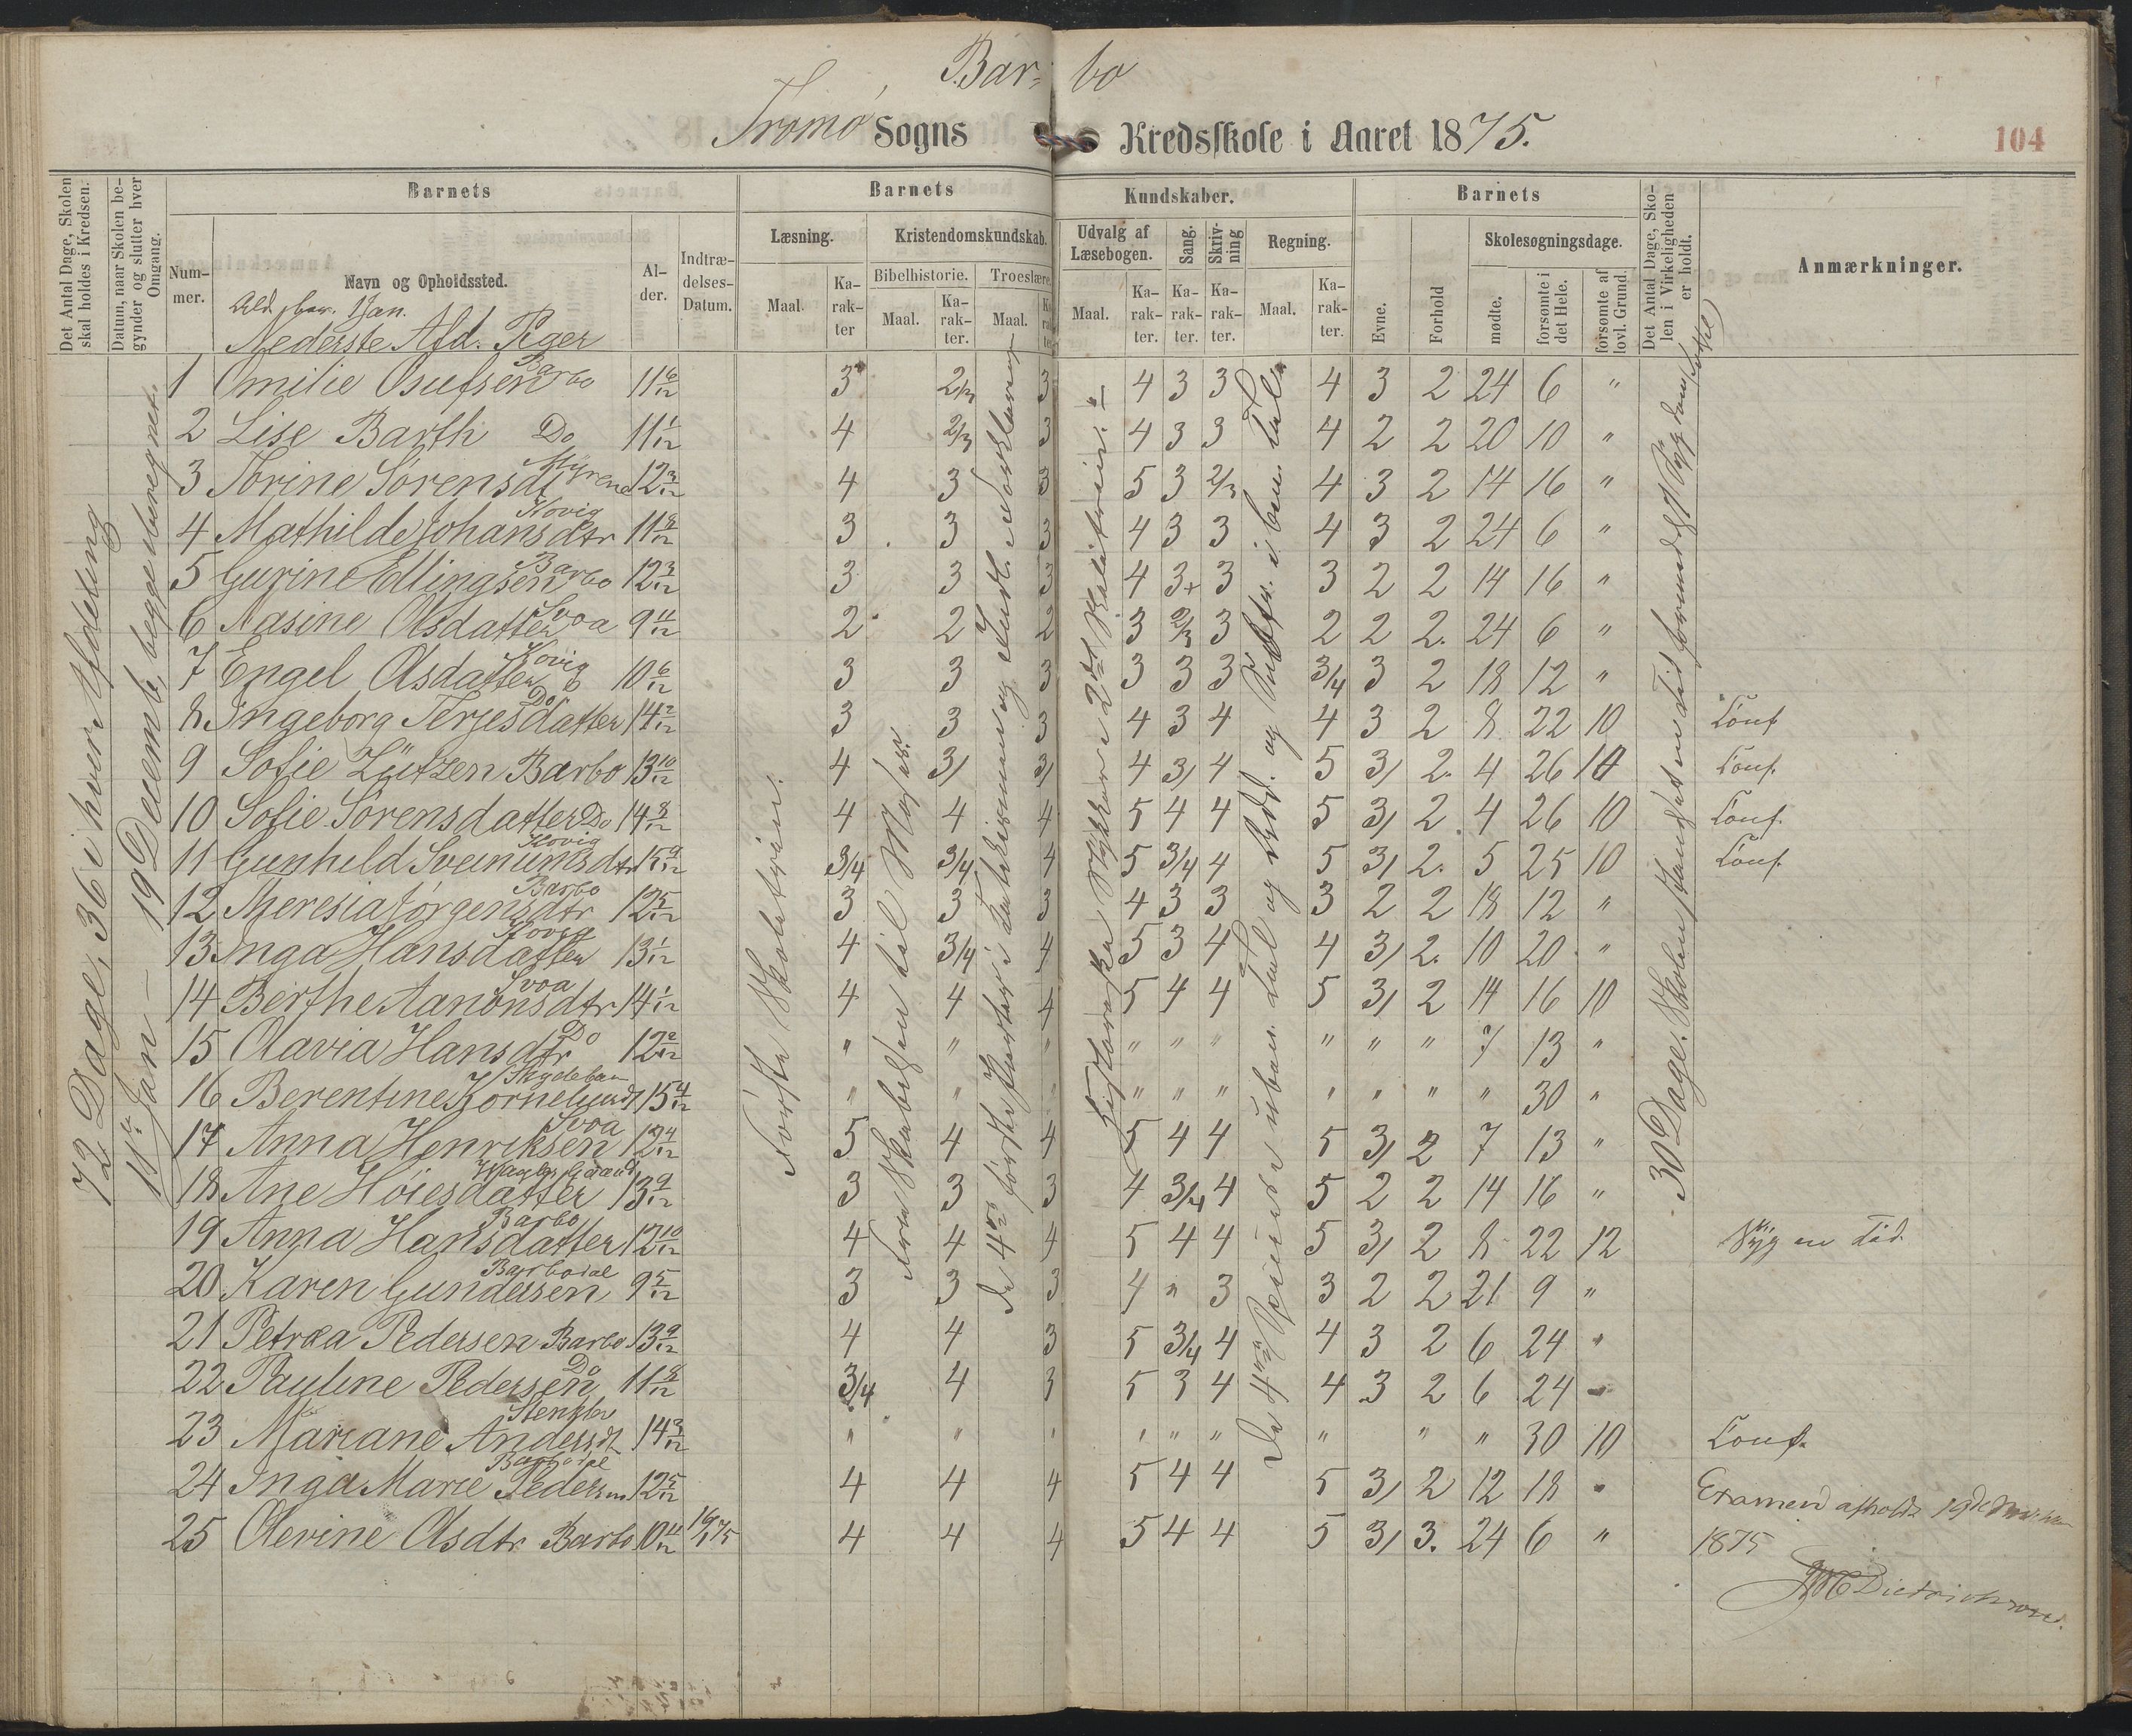 Bar- bo
Tromø Sogns Kredsskole i Aaret 1875.
104
Det Antal Dage, Skolen skal holdes i Kredsen.
Datum, naar Skolen begynder og slutter hver Omgang.
Barnets
Barnets
Kundskaber.
Barnets
Det Antal Dage, Skolen i Virkeligheden er holdt.
Anmærkninger.
Nummer.
Navn og Opholdssted.
Alder.
Indtrædelses-Datum.
Læsning.
Kristendomskundskab.
Udvalg af Læsebogen.
Sang.
Skrivning
Regning.
Evne.
Forhold
Skolesøgningsdage.
Bibelhistorie.
Troeslære
Maal.
Karakter
Maal.
Karakter.
Maal.
Maal.
Karakter.
Karakter.
Karakter.
Maal.
Karakter.
mødte.
forsømte i det Hele.
forsømte af lovl. Grund.
1 Jan.
Nederste Afd. Piger
72 Dage, 36 i hver Afdeling
11te Jan – 19 Decemb, begge iberegnet.
30 Dage. Skolen
1 Omilie Osufsen Barbo 11 6/12 3 2/3 3 4 3 3 4 3 2 24 6 "
2 Lise Barth Do 11 1/12 4 2/3 3 4 3 3 4 2 2 20 10 "
3 Torine Sørensdt Myrene 12 3/12 4 3 3 5 3 2/3 4 3 2 14 16 "
4 Mathilde Johansdtr Kovig 11 8/12 3 3 3 4 3 3 4 3 2 24 6 "
5 Gurine Ellingsen Barbo 12 3/12 3 3 3 4 3+ 3 3 2 2 14 16 "
6 Nasine Olsdatter Svoa 9 11/12 2 2 2 3 2/3 3 2 2 2. 24 6 "
7 Engel Olsdatter Kovig 10 6/12 3 3 3 3 3 3 3/4 3 2 18 12 "
8 Ingeborg Terjesdatter Do 14 2/12 3 3 3 4 3 4 4 3 2 8 22 10 Conf
9 Sofie Lützen Barbo 13 10/12 4 3/ 3/ 4 3/ 4 5 3/ 2. 4 26 10 Conf.
10 Sofie Sørensdatter Do 14 8/12 4 4 4 5 4 4 5 3/ 2. 4 26 10 Conf.
11 Gunhild Sveinumsdtr Kovig 15 9/12 3/4 3/4 4 5 3/4 4 5 3/ 2. 5 25 10 Conf.
12 Theresia Jørgensdtr Barbo 12 5/12 3 3 3 4 3 3 3 2 2 18 12 "
13 Inga Hansdatter Kovig 13 1/12 4 3/4 4 5 3 4 4 3/ 2. 10 20 "
14 Berthe Aanonsdtr Svoa 14 1/12 4 4 4 5 4 4 5 3/ 2 14 16 10
15 Olavia Hansdtr Do 12 2/12 " " " " " " " " " 7 13 "
16 Berentine 15 4/12 " " " " " " " " " 30 "
17 Anna Henriksen Svoa 12 4/12 5 4 4 5 4 4 5 3/ 2 7 13 "
18 Ane Høiesdatter 13 9/12 3 3 3 4 3/4 4 5 2 2 14 16 "
19 Anna Hansdatter Barbo 12 10/12 4 4 4 5 4 4 5 3/ 2 8 22 12 Syg en Tid.
20 Karen Gundersen Barbodal 9 5/12 3 3 3 4 " 3 3 2 2 21 9 "
21 Petrea Pedersen Barbo 13 9/12 4 4 3 5 3/4 4 4 3 2 6 24 "
22 Pauline Pedersen Do 11 8/12 3/4 4 3 5 3 4 4 3 2 6 24 -
23 Mariane Andersdt 14 3/12 " " " " " " " " " 30 10 Conf.
24 Inga Marie Pedersen Barbodal 12 5/12 4 4 4 5 4 4 5 3/ 2 12 18 "
25 Olevine Olsdtr Barbo 10 11/12 19/1 75 4 4 4 5 4 4 5 3/ 3. 24 6 "
Første Skoletrin.
Fra Skabelsen til Moses
De 4re første Parter i Katekismen og Forklaring
Historiske Stykker i 2det Skoletrin.
De 4re Regnearter i uben. Tal og Add. og Subtr. i ben. Tal
Examen afholdt 19de December
1875
Dietrichson.